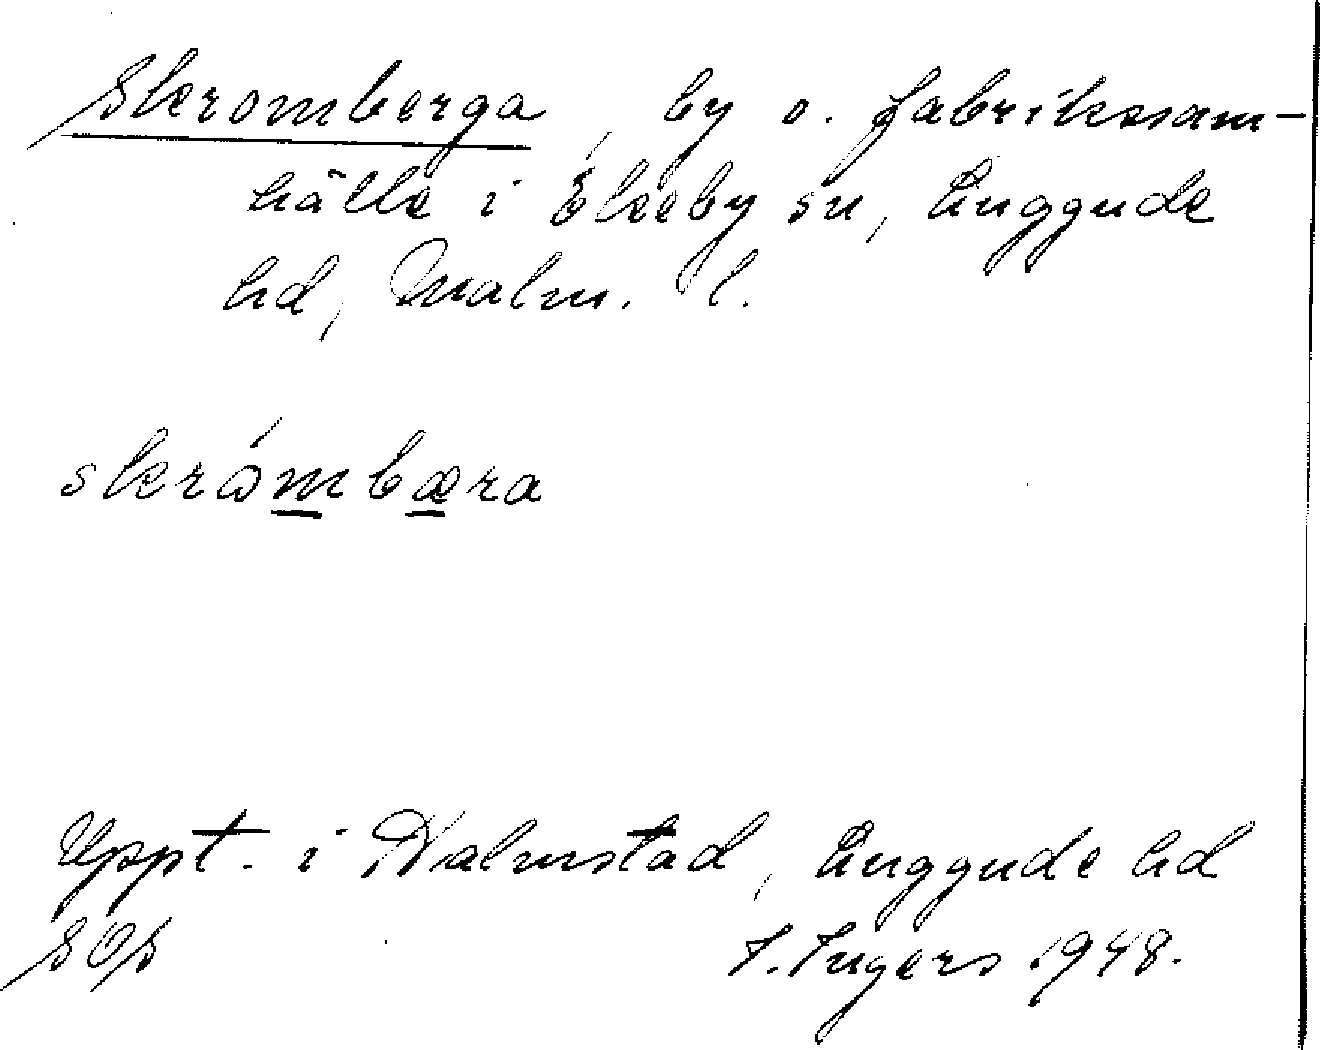 Skromberga, by o. fabrikssam-
hälle i Ekeby sn, Luggude
hd, Malm. l.
skrǻmbæra
Uppt. i Halmstad, Luggude hd
SOS I. Ingers 1948.